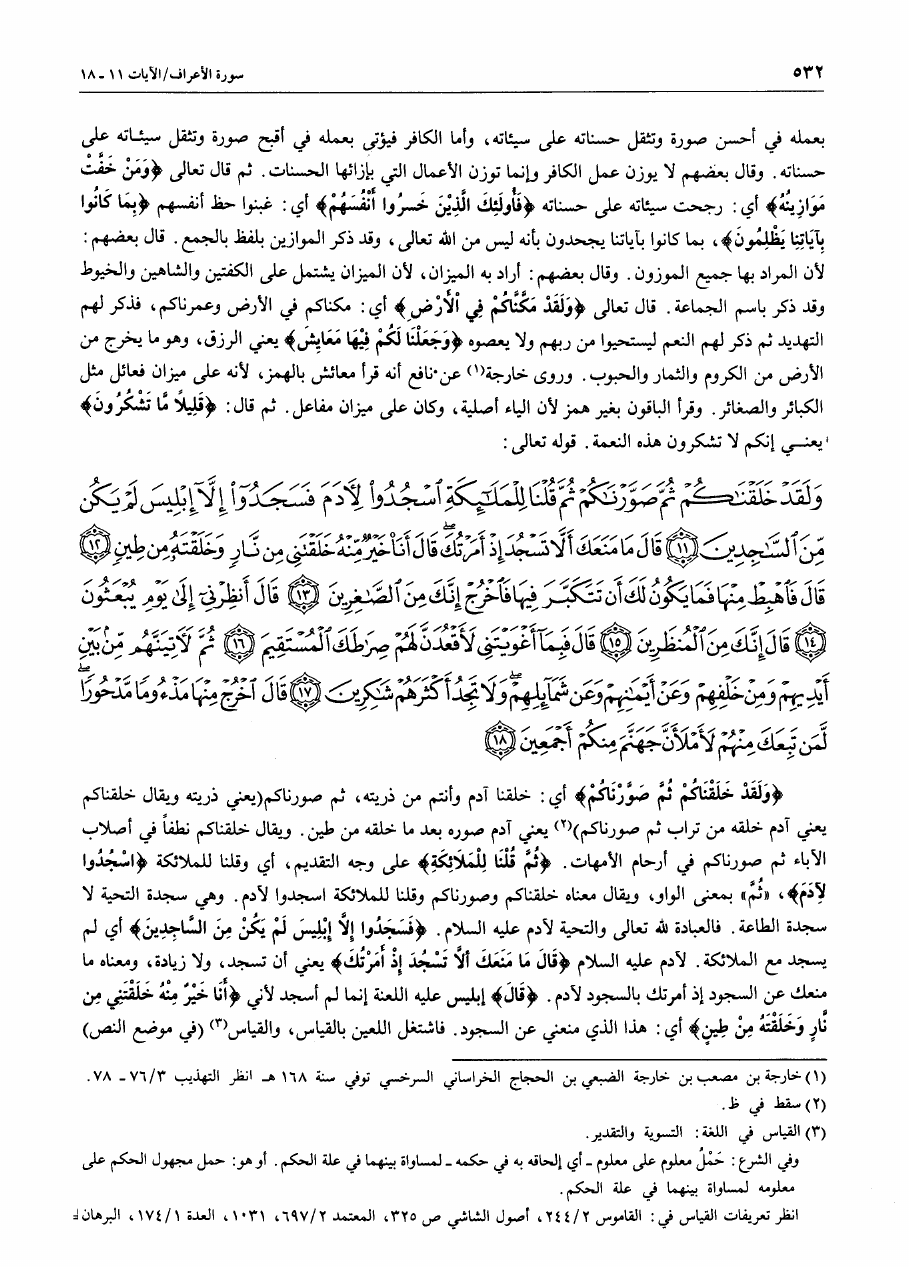 ٥٣٢
سورة الأعراف/الآيات ١١ - ١٨
بعمله في أحسن صورة وتثقل حسناته على سيئاته، وأما الكافر فيؤتى بعمله في أقبح صورة وتثقل سيئاته على
حسناته. وقال بعضهم لا يوزن عمل الكافر وإنما توزن الأعمال التي بإزائها الحسنات. ثم قال تعالى ﴿وَمَنْ خَفَّتْ
مَوَازِينُهُ﴾ أي: رجحت سيئاته على حسناته ﴿فَأُولَئِكَ الَّذِينَ خَسِرُوا أَنْفُسَهُمْ﴾ أي: غبنوا حظ أنفسهم ﴿بِمَا كَانُوا
بِآيَاتِنَا يَظْلِمُونَ﴾، بما كانوا بآياتنا يجحدون بأنه ليس من الله تعالى، وقد ذكر الموازين بلفظ بالجمع. قال بعضهم:
لأن المراد بها جميع الموزون. وقال بعضهم: أراد به الميزان، لأن الميزان يشتمل على الكفتين والشاهين والخيوط
وقد ذكر باسم الجماعة. قال تعالى ﴿وَلَقَدْ مَكَّنَّاكُمْ فِي الْأَرْضِ﴾ أي: مكناكم في الأرض وعمرناكم، فذكر لهم
التهديد ثم ذكر لهم النعم ليستحيوا من ربهم ولا يعصوه ﴿وَجَعَلْنَا لَكُمْ فِيْهَا مَعَايِشَ﴾ يعني الرزق، وهو ما يخرج من
الأرض من الكروم والثمار والحبوب. وروى خارجة(١) عن نافع أنه قرأ معائش بالهمز، لأنه على ميزان فعائل مثل
الكبائر والصغائر. وقرأ الباقون بغير همز لأن الياء أصلية، وكان على ميزان مفاعل. ثم قال: ﴿قَلِيلًا مَّا تَشْكُرُونَ﴾
يعنـي إنكم لا تشكرون هذه النعمة. قوله تعالى:
وَلَقَدْ خَلَقْنَـٰكُمْ ثُمَّ صَوَّرْنَـٰكُمْ ثُمَّ قُلْنَا لِلْمَلَـٰٓئِكَةِ ٱسْجُدُوا۟ لِـَٔادَمَ فَسَجَدُوٓا۟ إِلَّآ إِبْلِيسَ لَمْ يَكُن
مِّنَ ٱلسَّـٰجِدِينَ ١١ قَالَ مَا مَنَعَكَ أَلَّا تَسْجُدَ إِذْ أَمَرْتُكَ ۖ قَالَ أَنَا۠ خَيْرٌ مِّنْهُ خَلَقْتَنِى مِن نَّارٍ وَخَلَقْتَهُۥ مِن طِينٍ ١٢
قَالَ فَٱهْبِطْ مِنْهَا فَمَا يَكُونُ لَكَ أَن تَتَكَبَّرَ فِيهَا فَٱخْرُجْ إِنَّكَ مِنَ ٱلصَّـٰغِرِينَ ١٣ قَالَ أَنظِرْنِىٓ إِلَىٰ يَوْمِ يُبْعَثُونَ
١٤ قَالَ إِنَّكَ مِنَ ٱلْمُنظَرِينَ ١٥ قَالَ فَبِمَآ أَغْوَيْتَنِى لَأَقْعُدَنَّ لَهُمْ صِرَٰطَكَ ٱلْمُسْتَقِيمَ ١٦ ثُمَّ لَـَٔاتِيَنَّهُم مِّنۢ بَيْنِ
أَيْدِيهِمْ وَمِنْ خَلْفِهِمْ وَعَنْ أَيْمَـٰنِهِمْ وَعَن شَمَآئِلِهِمْ ۖ وَلَا تَجِدُ أَكْثَرَهُمْ شَـٰكِرِينَ ١٧ قَالَ ٱخْرُجْ مِنْهَا مَذْءُومًا مَّدْحُورًا ۖ
لَّمَن تَبِعَكَ مِنْهُمْ لَأَمْلَأَنَّ جَهَنَّمَ مِنكُمْ أَجْمَعِينَ ١٨
﴿وَلَقَدْ خَلَقْنَاكُمْ ثُمَّ صَوَّرْنَاكُمْ﴾ أي: خلقنا آدم وأنتم من ذريته، ثم صورناكم(يعني ذريته ويقال خلقناكم
يعني آدم خلقه من تراب ثم صورناكم)(٢) يعني آدم صوره بعد ما خلقه من طين. ويقال خلقناكم نطفاً في أصلاب
الآباء ثم صورناكم في أرحام الأمهات. ﴿ثُمَّ قُلْنَا لِلْمَلَائِكَةِ﴾ على وجه التقديم، أي وقلنا للملائكة ﴿اسْجُدُوا
لِآدَمَ﴾، «ثُمَّ» بمعنى الواو، ويقال معناه خلقناكم وصورناكم وقلنا للملائكة اسجدوا لآدم. وهي سجدة التحية لا
سجدة الطاعة. فالعبادة لله تعالى والتحية لآدم عليه السلام. ﴿فَسَجَدُوا إِلَّا إِبْلِيسَ لَمْ يَكُنْ مِنَ السَّاجِدِينَ﴾ أي لم
يسجد مع الملائكة. لآدم عليه السلام ﴿قَالَ مَا مَنَعَكَ أَلَّا تَسْجُدَ إِذْ أَمَرْتُكَ﴾ يعني أن تسجد، ولا زيادة، ومعناه ما
منعك عن السجود إذ أمرتك بالسجود لآدم. ﴿قَالَ﴾ إبليس عليه اللعنة إنما لم أسجد لأني ﴿أَنَا خَيْرٌ مِنْهُ خَلَقْتَنِي مِن
نَّارٍ وَخَلَقْتَهُ مِنْ طِينٍ﴾ أي: هذا الذي منعني عن السجود. فاشتغل اللعين بالقياس، والقياس(٣) (في موضع النص)
(١) خارجة بن مصعب بن خارجة الضبعي بن الحجاج الخراساني السرخسي توفي سنة ١٦٨ هـ انظر التهذيب ٧٦/٣ - ٧٨.
(٢) سقط في ظ.
(٣) القياس في اللغة: التسوية والتقدير.
وفي الشرع: حَمْلُ معلوم على معلوم - أي إلحاقه به في حكمه - لمساواة بينهما في علة الحكم. أو هو: حمل مجهول الحكم على
معلومه لمساواة بينهما في علة الحكم.
انظر تعريفات القياس في: القاموس ٢٤٤/٢، أصول الشاشي ص ٣٢٥، المعتمد ٦٩٧/٢، ١٠٣١، العدة ١٧٤/١، البرهان =